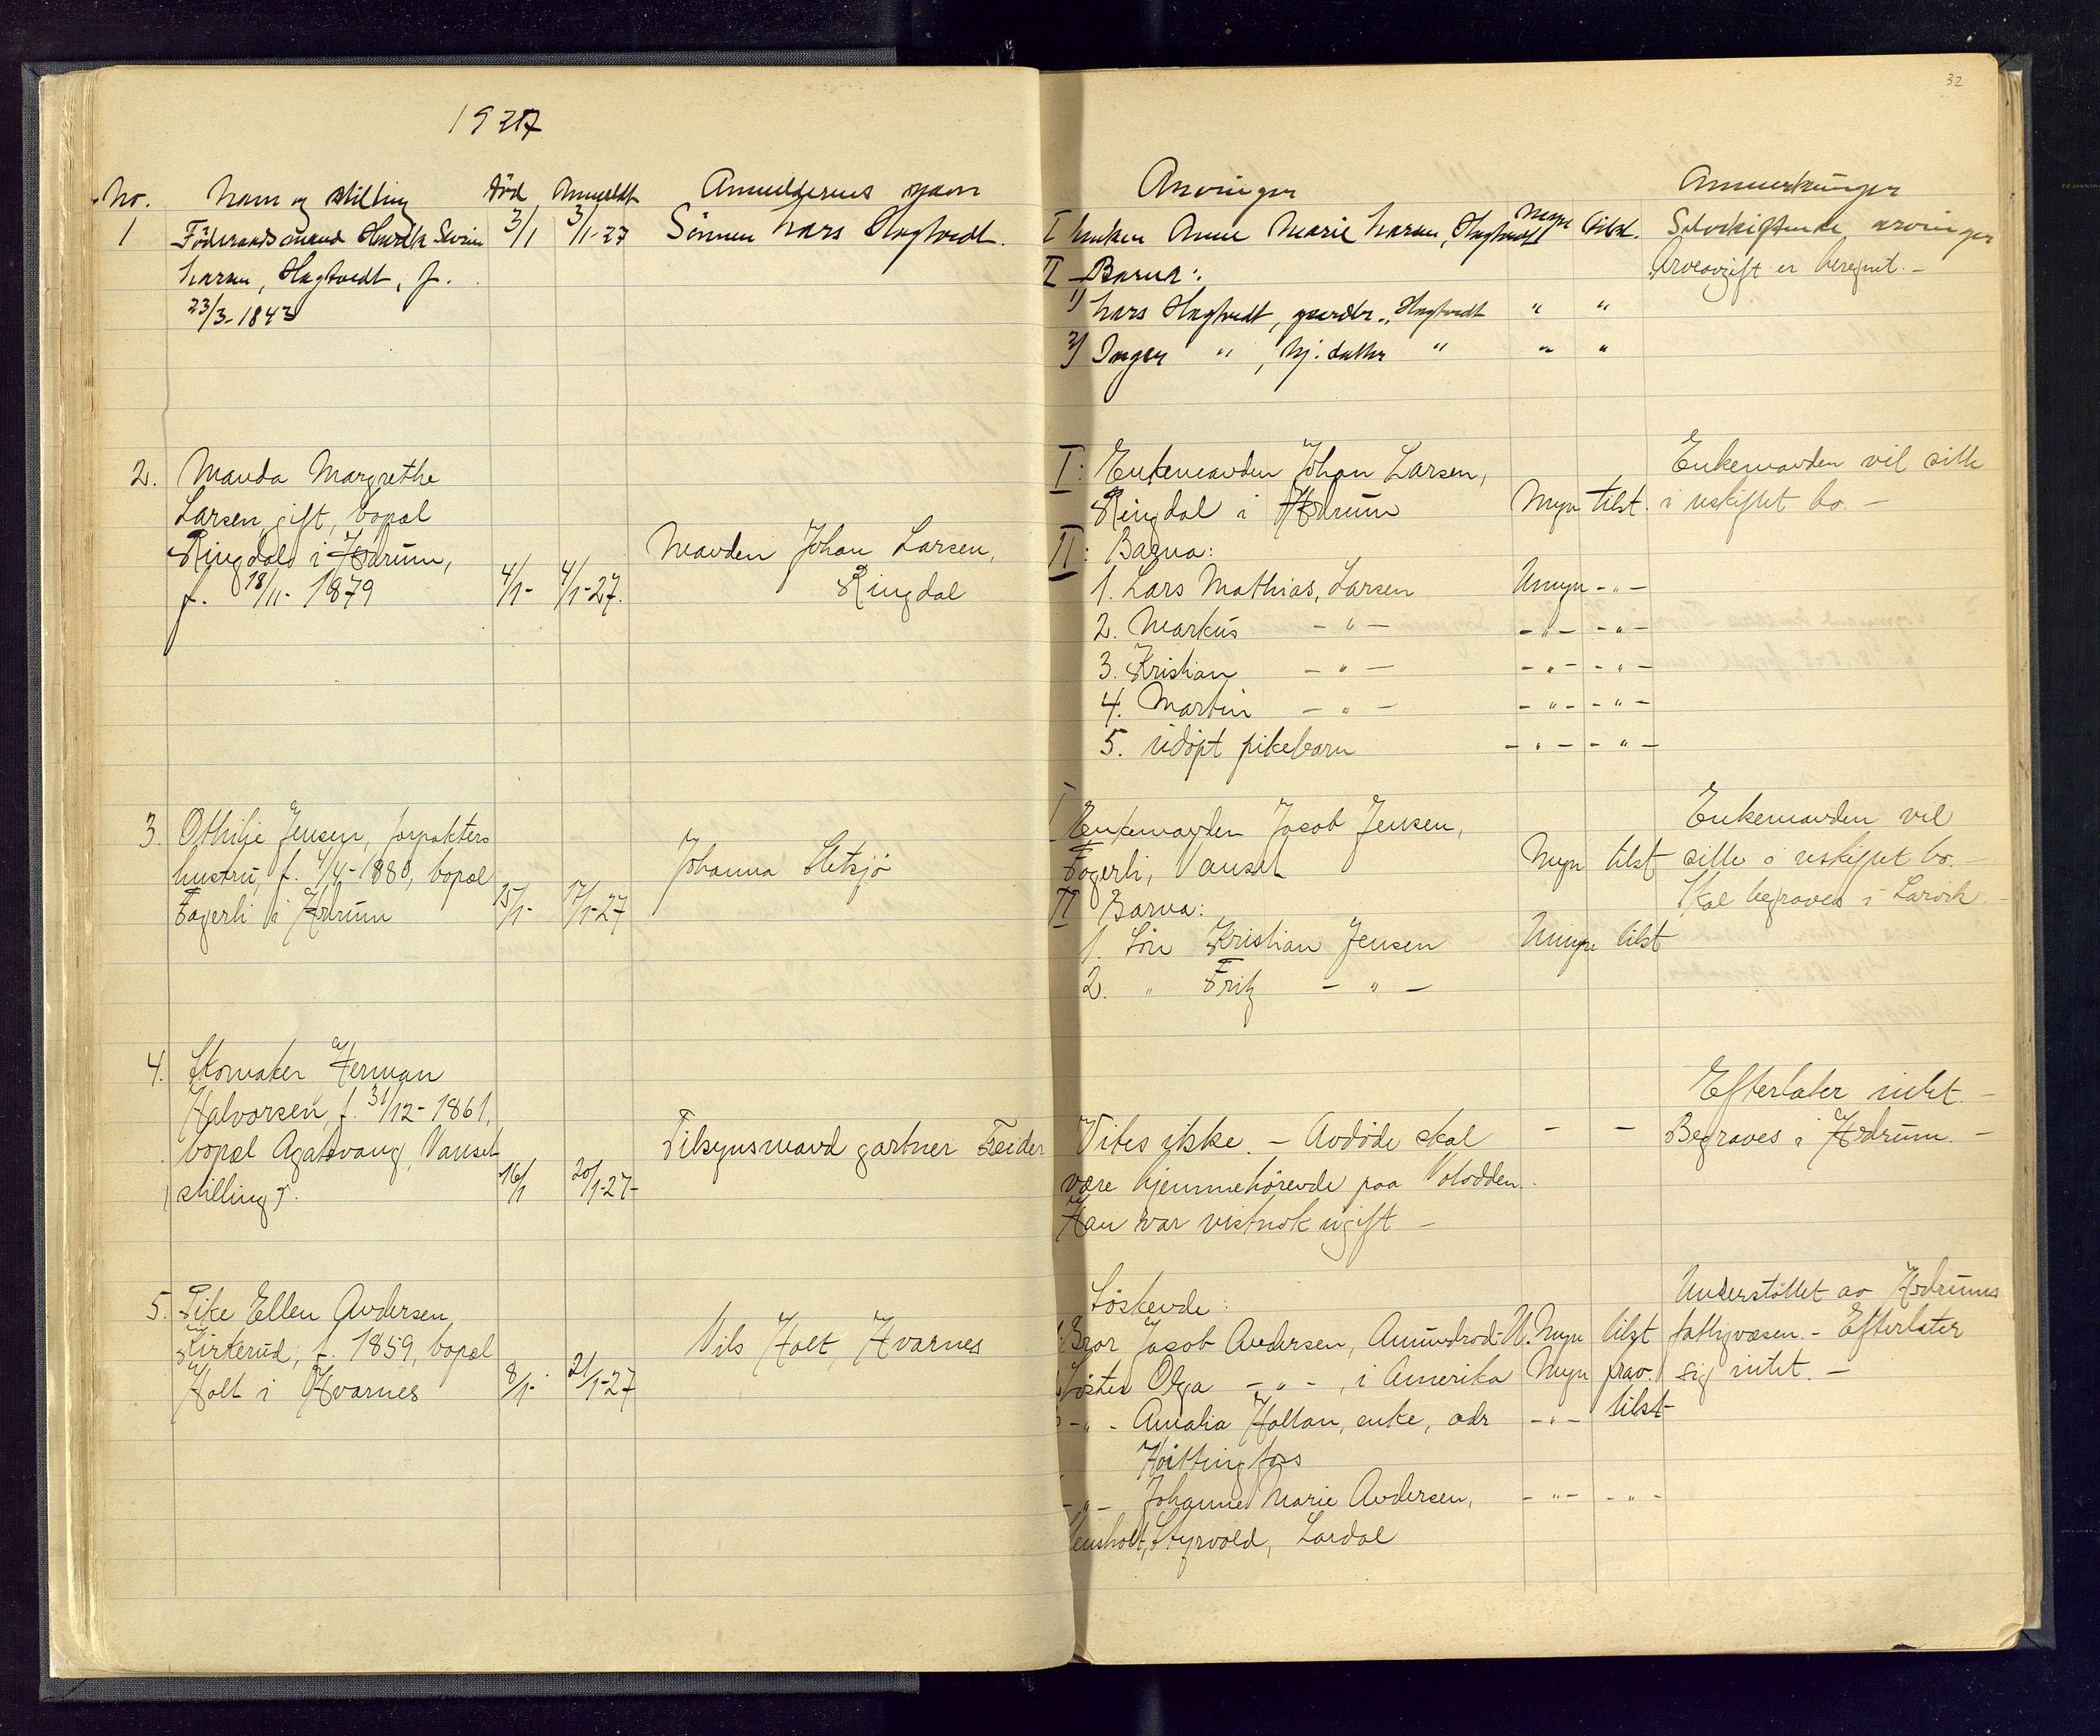 32
1927
No. Navn og stilling Död Anmeldt Anmelderens navn
1 Föderaadsmand Henrik Severin 3/1 3/1-27 Sönnen Lars Hagtvedt.
Larsen, Hagtvedt, f.
23/3-1843
2. Manda Margrethe
Larsen, gift, bopæl
Ringdal i Hedrum,
f. 18/11-1879 4/1- 4/1-27.
Manden Johan Larsen,
Ringdal
3. Othilje Jensen, forpakters
hustru, f. 4/4-1880, bopæl
Fagerli i Hedrum 15/1- 17/1-27
Johanna Sletsjø
4. Skomaker Herman
Halvorsen, f. 31/12-1861,
bopæl Agatsvang, Nanset
stilling?. 16/1 20/1-27-
Tilsynsmand gartner Freider
5. Pike Ellen Andersen
Kirkerud, f. 1859, bopæl
Holt i Hvarnes 8/1- 21/1-27
Nils Holt, Hvarnes
Arvinger Anmerkninger
I Enken Anne Marie Larsen, Hagtvedt Myn tilst. Selvskiftende arvinger
II Barna: Arveavgift er beregnet. -
1) Lars Hagtvedt, gaardbr., Hagtvedt " "
2) Inger " , hj. datter " " "
I: Enkemanden Johan Larsen, Enkemanden vil sitte
Ringdal i Hedrum Myn tilst. i uskiftet bo. -
II: Barna:
1. Lars Mathias, Larsen Umyn - " -
2. Markus - " - - " - - " -
3. Kristian - " - - " - - " -
4. Martin - " - - " - - " -
5. udöpt pikebarn - " - - " -
I Enkemanden Jacob Jensen, Enkemanden vil
Fagerli, Nanset Myn tilst sitte i uskiftet bo. -
II Barna: Skal begraves i Larvik. -
1. Sön Kristian Jensen Umyn tilst
2. " Fritz - " -
Efterlater intet. -
Vites ikke. - Avdöde skal - - Begraves i Hedrum. -
være hjemmehörende paa Notodden.
Han var vistnok ugift -
Söskende: Understöttet av Hedrums
Bror Jacob Andersen, Amundrød-N. Myn tilst fattigvæsen. - Efterlater
Söster Olga - " - , i Amerika Myn frav. sig intet. -
- " - Amalia Holtan, enke, adr - " - tilst
Hvittingfoss
- " - Johanne Marie Andersen, - " - - " -
Styrvold, Lardal